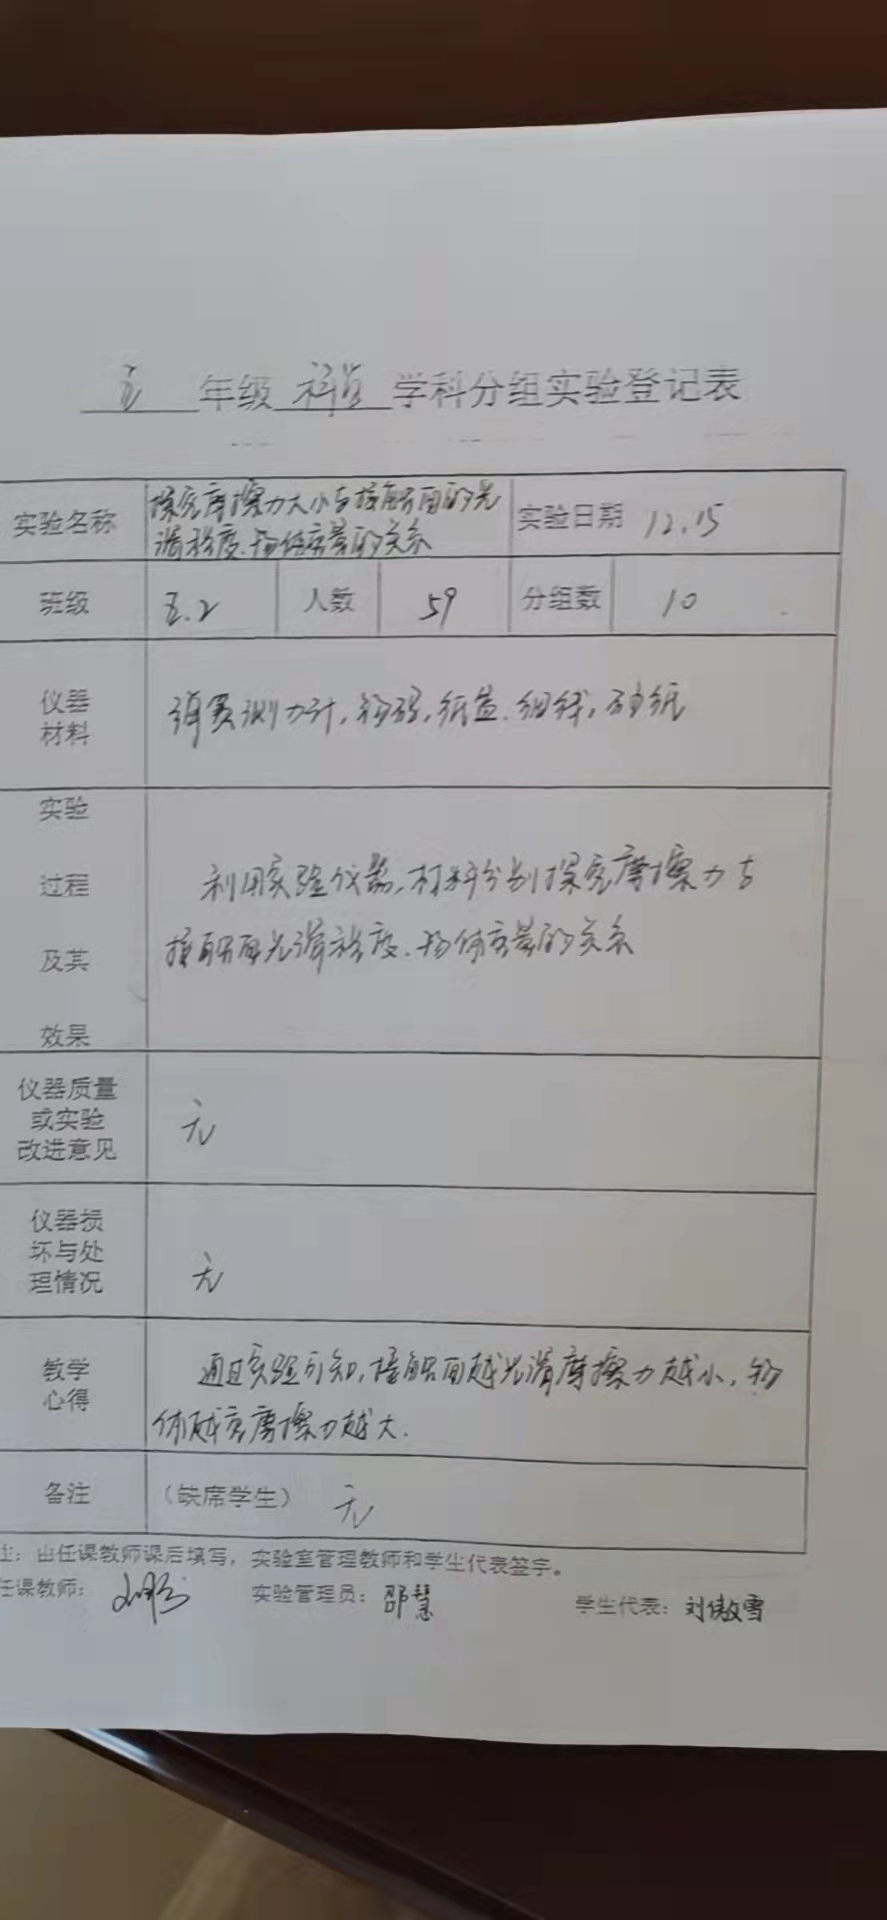 五 年级 科学 学科分组实验登记表
实验名称 探究摩擦力大小与接触面的光
滑程度、物体重量的关系 实验日期 12.15
班级 五.2 人数 59 分组数 10
仪器
材料
弹簧测力计,钩码,纸盒、细线,砂纸
实验
过程
及其
效果
利用实验仪器,材料分别探究摩擦力与
接触面光滑程度、物体重量的关系
仪器质量
或实验
改进意见
无
仪器损
坏与处
理情况
无
教学
心得
通过实验可知,接触面越光滑摩擦力越小,物
体越重摩擦力越大.
备注 (缺席学生) 无
注:由任课教师课后填写,实验室管理教师和学生代表签字。
任课教师: 实验管理员:邵慧 学生代表:刘傲雪